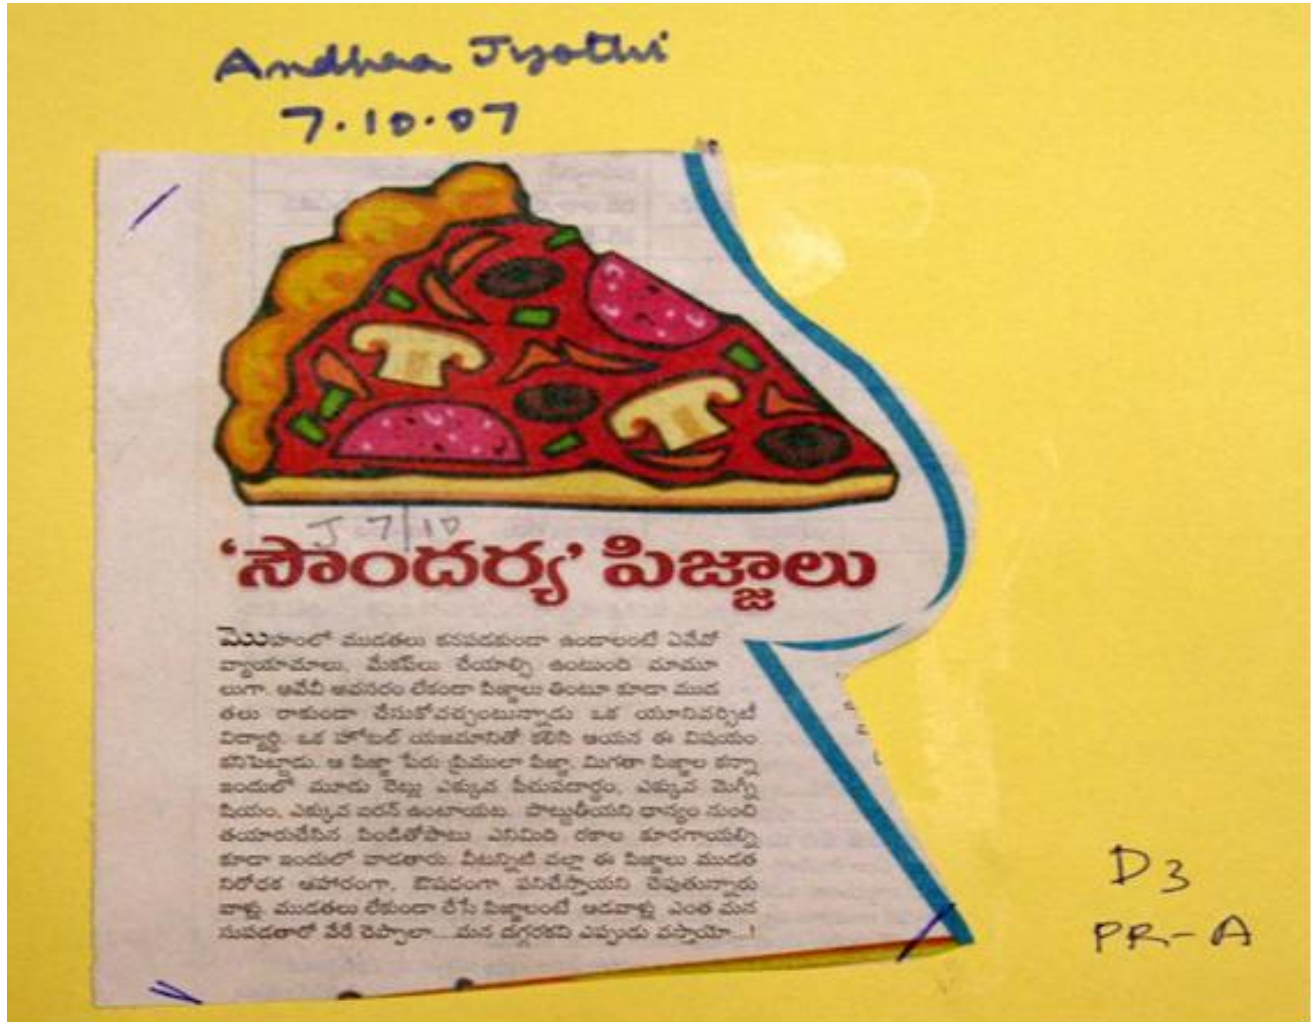 Andhra Jyothi
7.10.07
J 7/10
‘సౌందర్య’ పిజ్జాలు
మొహంలో ముడతలు కనపడకుండా ఉండాలంటే ఏవేవో
వ్యాయామాలు, మేకప్‌లు చేయాల్సి ఉంటుంది మామూ
లుగా. అవేవీ అవసరం లేకండా పిజ్జాలు తింటూ కూడా ముడ
తలు రాకుండా చేసుకోవచ్చంటున్నాడు ఒక యూనివర్సిటీ
విద్యార్థి. ఒక హోటల్ యజమానితో కలిసి ఆయన ఈ విషయం
కనిపెట్టాడు. ఆ పిజ్జా పేరు ప్రిములా పిజ్జా. మిగతా పిజ్జాల కన్నా
ఇందులో మూడు రెట్లు ఎక్కువ పీచుపదార్థం, ఎక్కువ మెగ్నీ
షియం, ఎక్కువ ఐరన్ ఉంటాయట. పొట్టుతీయని ధాన్యం నుంచి
తయారుచేసిన పిండితోపాటు ఎనిమిది రకాల కూరగాయల్ని
కూడా ఇందులో వాడతారు. వీటన్నిటి వల్లా ఈ పిజ్జాలు ముడత
నిరోధక ఆహారంగా, ఔషధంగా పనిచేస్తాయని చెపుతున్నారు
వాళ్లు. ముడతలు లేకుండా చేసే పిజ్జాలంటే ఆడవాళ్లు ఎంత మన
సుపడతారో వేరే చెప్పాలా....మన దగ్గరకవి ఎప్పుడు వస్తాయో...!
D3
PR-A